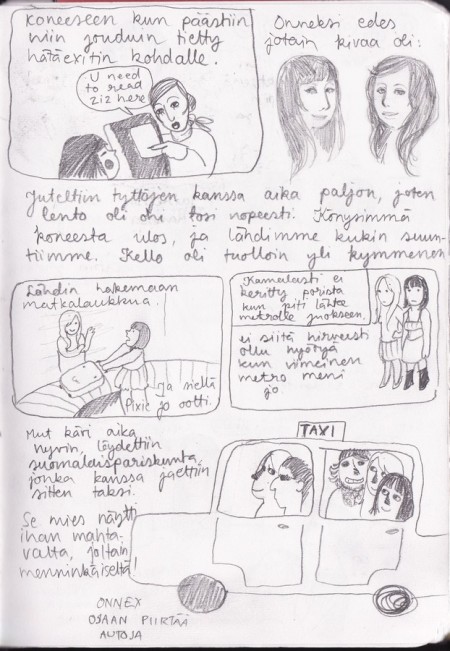 Koneeseen kun päästiin
niin jouduin tietty
hätäexitin kohdalle.
U need
to read
ziz here
Onneksi edes
jotain kivaa oli:
Juteltiin tyttöjen kanssa aika paljon, joten
lento oli ohi tosi nopeesti. Könysimmä
koneesta ulos, ja lähdimme kukin suun-
tiimme. Kello oli tuolloin yli kymmenen
Lähdin hakemaan
matkalaukkua.
Ja siellä
Pixie jo ootti.
Kamalasti ei
keritty porista
kun piti lähte
metrolle juokseen.
ei siitä hirveesti
ollu hyötyä
kun viimeinen
metro meni
jo
Mut kävi aika
hyvin, löydettiin
suomalaispariskunta
jonka kanssa jaettiin
sitten taksi.
TAXI
Se mies näytti
ihan mahta-
valta, joltain
menninkäiseltä!
ONNEX
OSAAN PIIRTÄÄ
AUTOJA